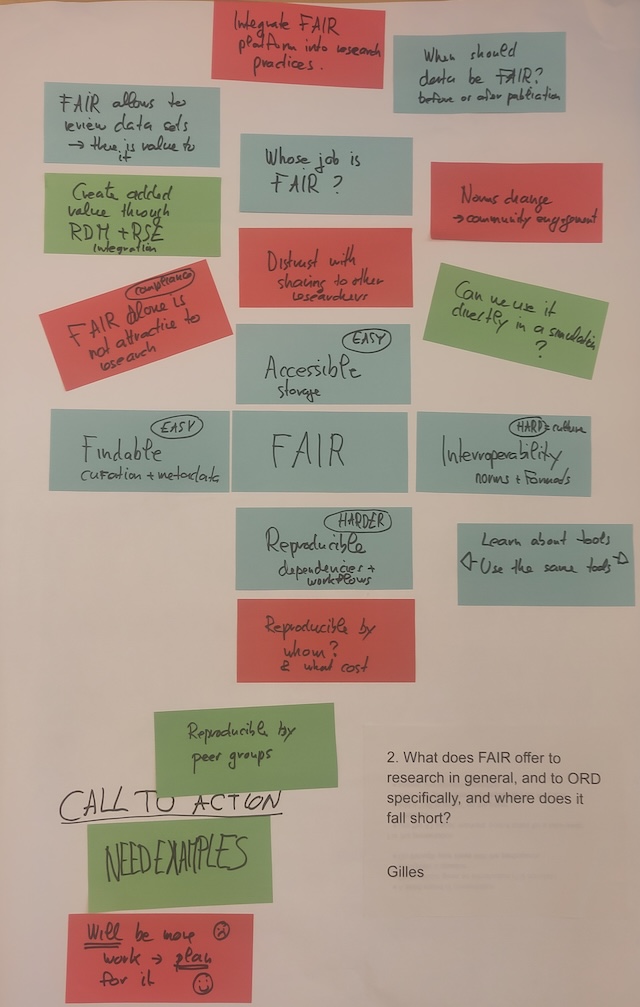 Integrate FAIR
platform into research
practices.
When should
data be FAIR?
before or after publication
FAIR allows to
review data sets
→ there is value to
it
Whose job is
FAIR ?
Create added
value through
RDM + RSE
integration
Norms change
→ community engagement
Distrust with
sharing to other
researchers
compliance
FAIR alone is
not attractive to
research
Can we use it
directly in a simulation
?
EASY
Accessible
storage
EASY
Findable
curation + metadata
FAIR
HARD = culture
Interroperability
norms + Formats
HARDER
Reproducible
dependencies +
workflows
Learn about tools
Use the same tools
Reproducible by
whom?
& what cost
Reproducible by
peer groups
2. What does FAIR offer to
research in general, and to ORD
specifically, and where does it
fall short?
Gilles
CALL TO ACTION
NEED EXAMPLES
Will be more
work → plan
for it